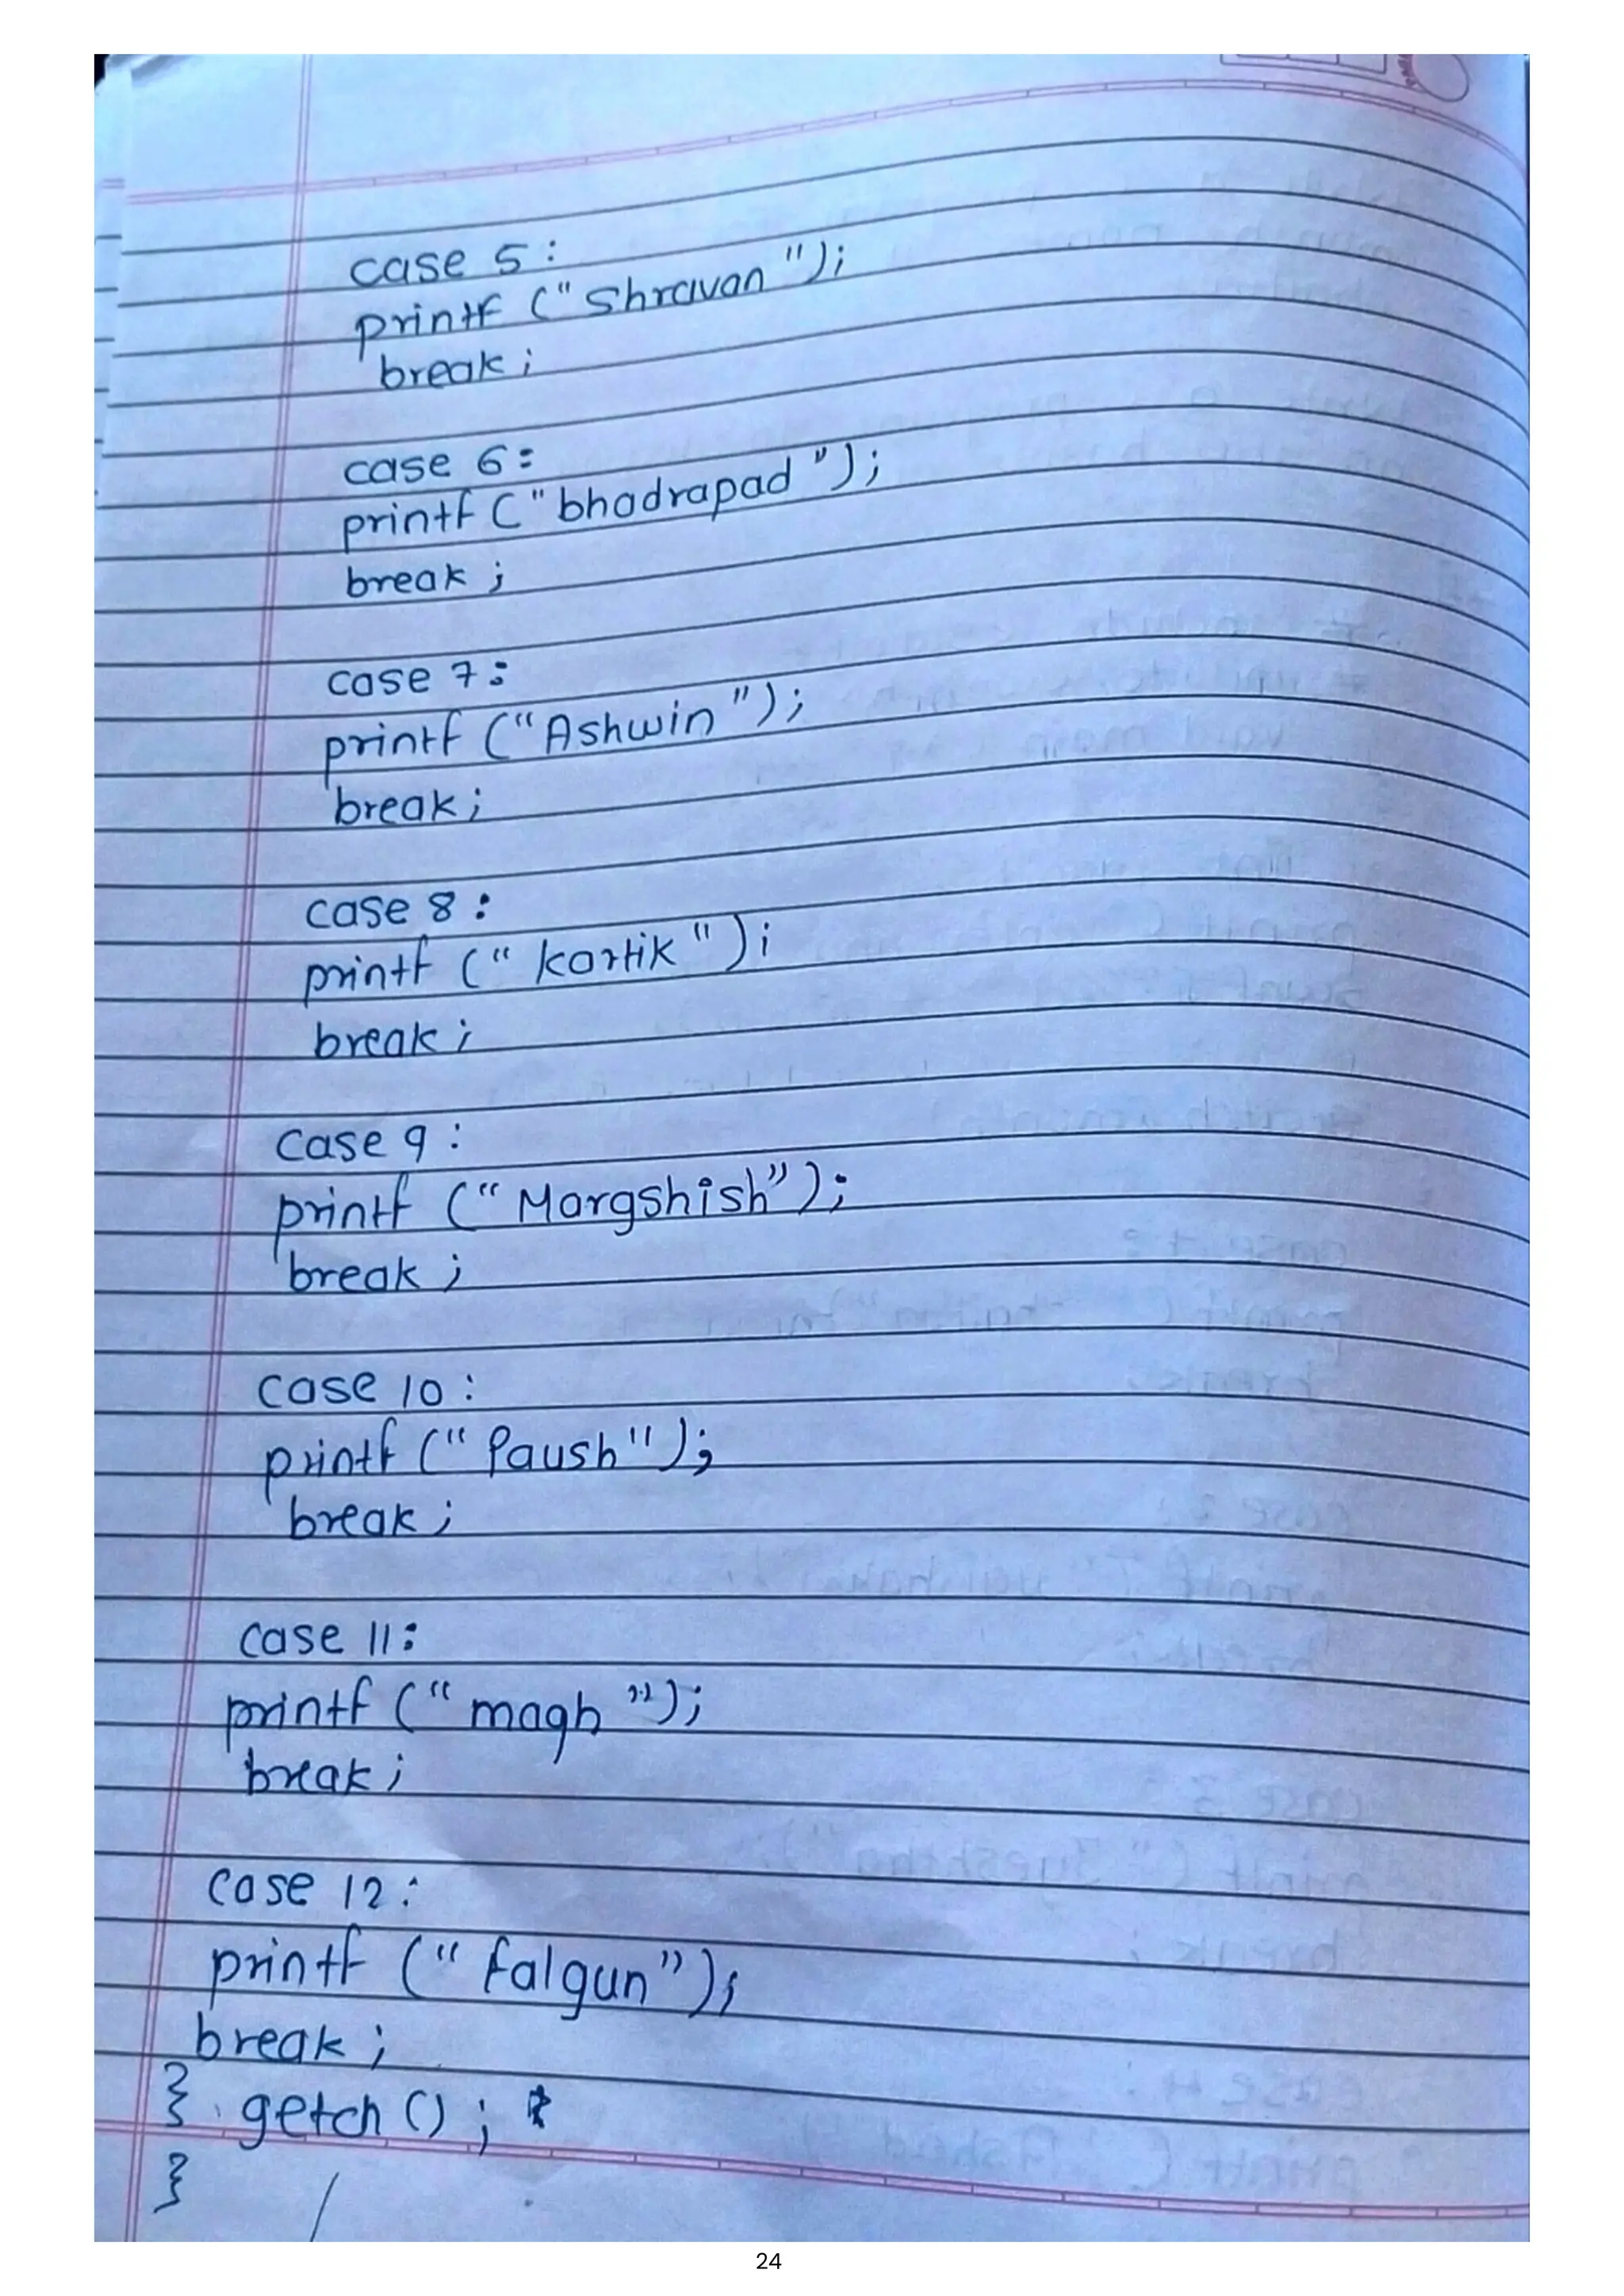 case 5:
printf ("Shravan");
break;
case 6:
printf ("bhadrapad");
break;
case 7:
printf ("Ashwin");
break;
case 8:
printf ("kartik");
break;
case 9:
printf ("Margshish");
break;
case 10:
printf ("Paush");
break;
case 11:
printf ("magh");
break;
case 12:
printf ("falgun");
break;
} getch();
}
24